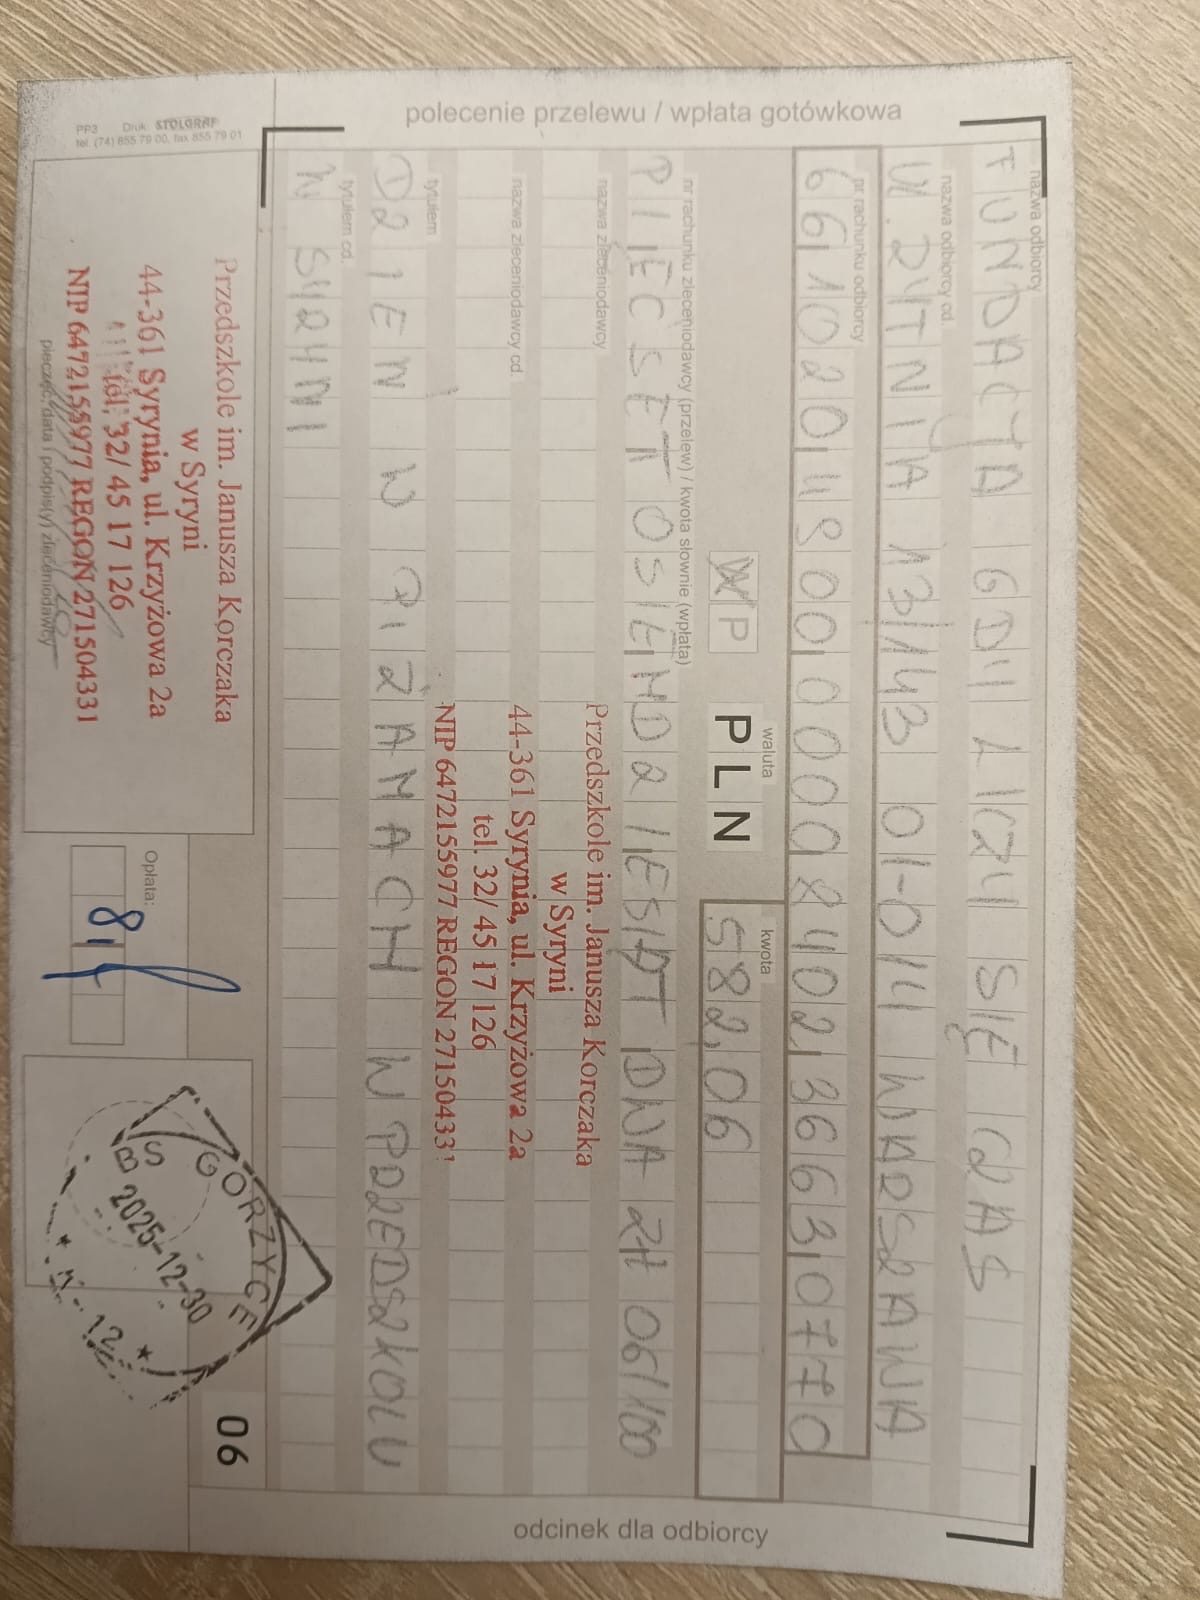 polecenie przelewu / wpłata gotówkowa
nazwa odbiorcy
FUNDACJA GDY LICZY SIĘ CZAS
nazwa odbiorcy cd.
UL. ŻYTNIA 13/14B 01-014 WARSZAWA
nr rachunku odbiorcy
66 1020 4800 0000 2402 3663 0770
waluta
kwota
WP PLN 582,06
nr rachunku zleceniodawcy (przelew) / kwota słownie (wpłata)
PIĘĆSET OSIEMDZIESIĄT DWA ZŁ 06/100
nazwa zleceniodawcy
Przedszkole im. Janusza Korczaka
w Syryni
nazwa zleceniodawcy cd.
44-361 Syrynia, ul. Krzyżowa 2a
tel. 32/ 45 17 126
NIP 6472155977 REGON 271504331
tytułem
DZIEŃ W PIŻAMACH W PRZEDSZKOLU
tytułem cd.
W SYRYNI
odcinek dla odbiorcy
06
Przedszkole im. Janusza Korczaka
w Syryni
44-361 Syrynia, ul. Krzyżowa 2a
tel. 32/ 45 17 126
NIP 6472155977 REGON 271504331
pieczęć, data i podpis(y) zleceniodawcy
Opłata:
8,-
GORZYCE
BS
2025-12-30
PP3 Druk: STOLGRAF
tel. (74) 855 79 00, fax 855 79 01